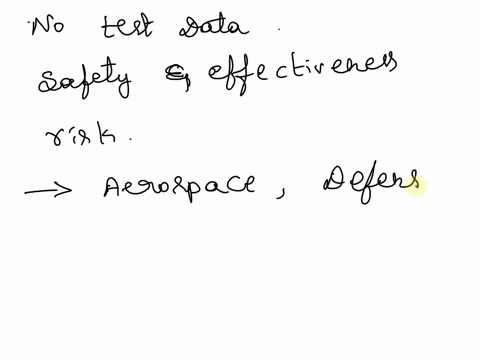 No test Data.
Safety & effectiveness
risk.
→ Aerospace, Defens